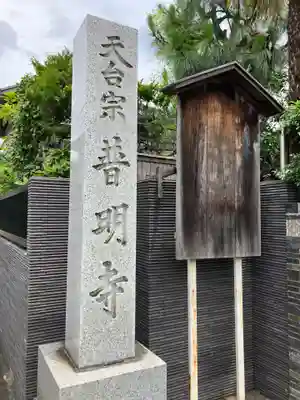 天台宗 普明寺